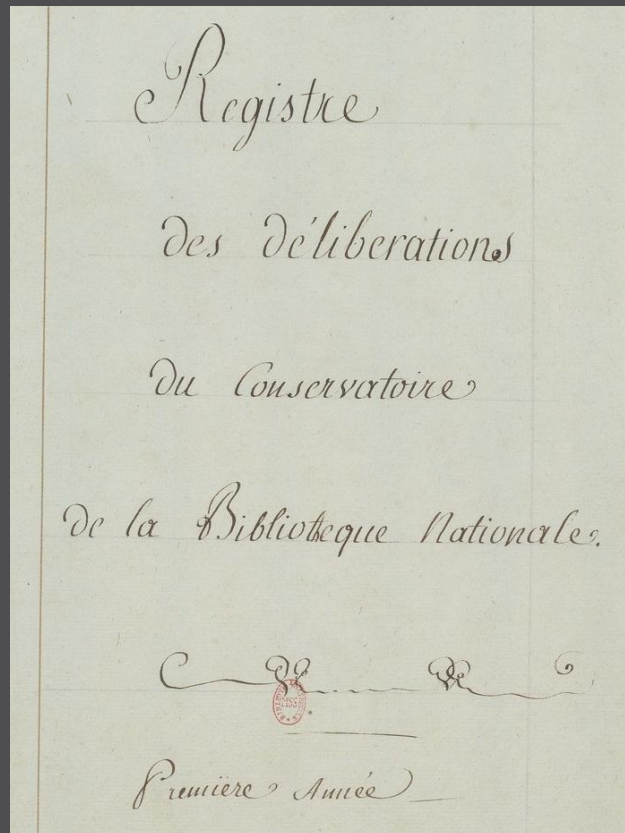 Registre
des déliberations
du Conservatoire
de la Bibliotheque Nationale.
Premiere Année